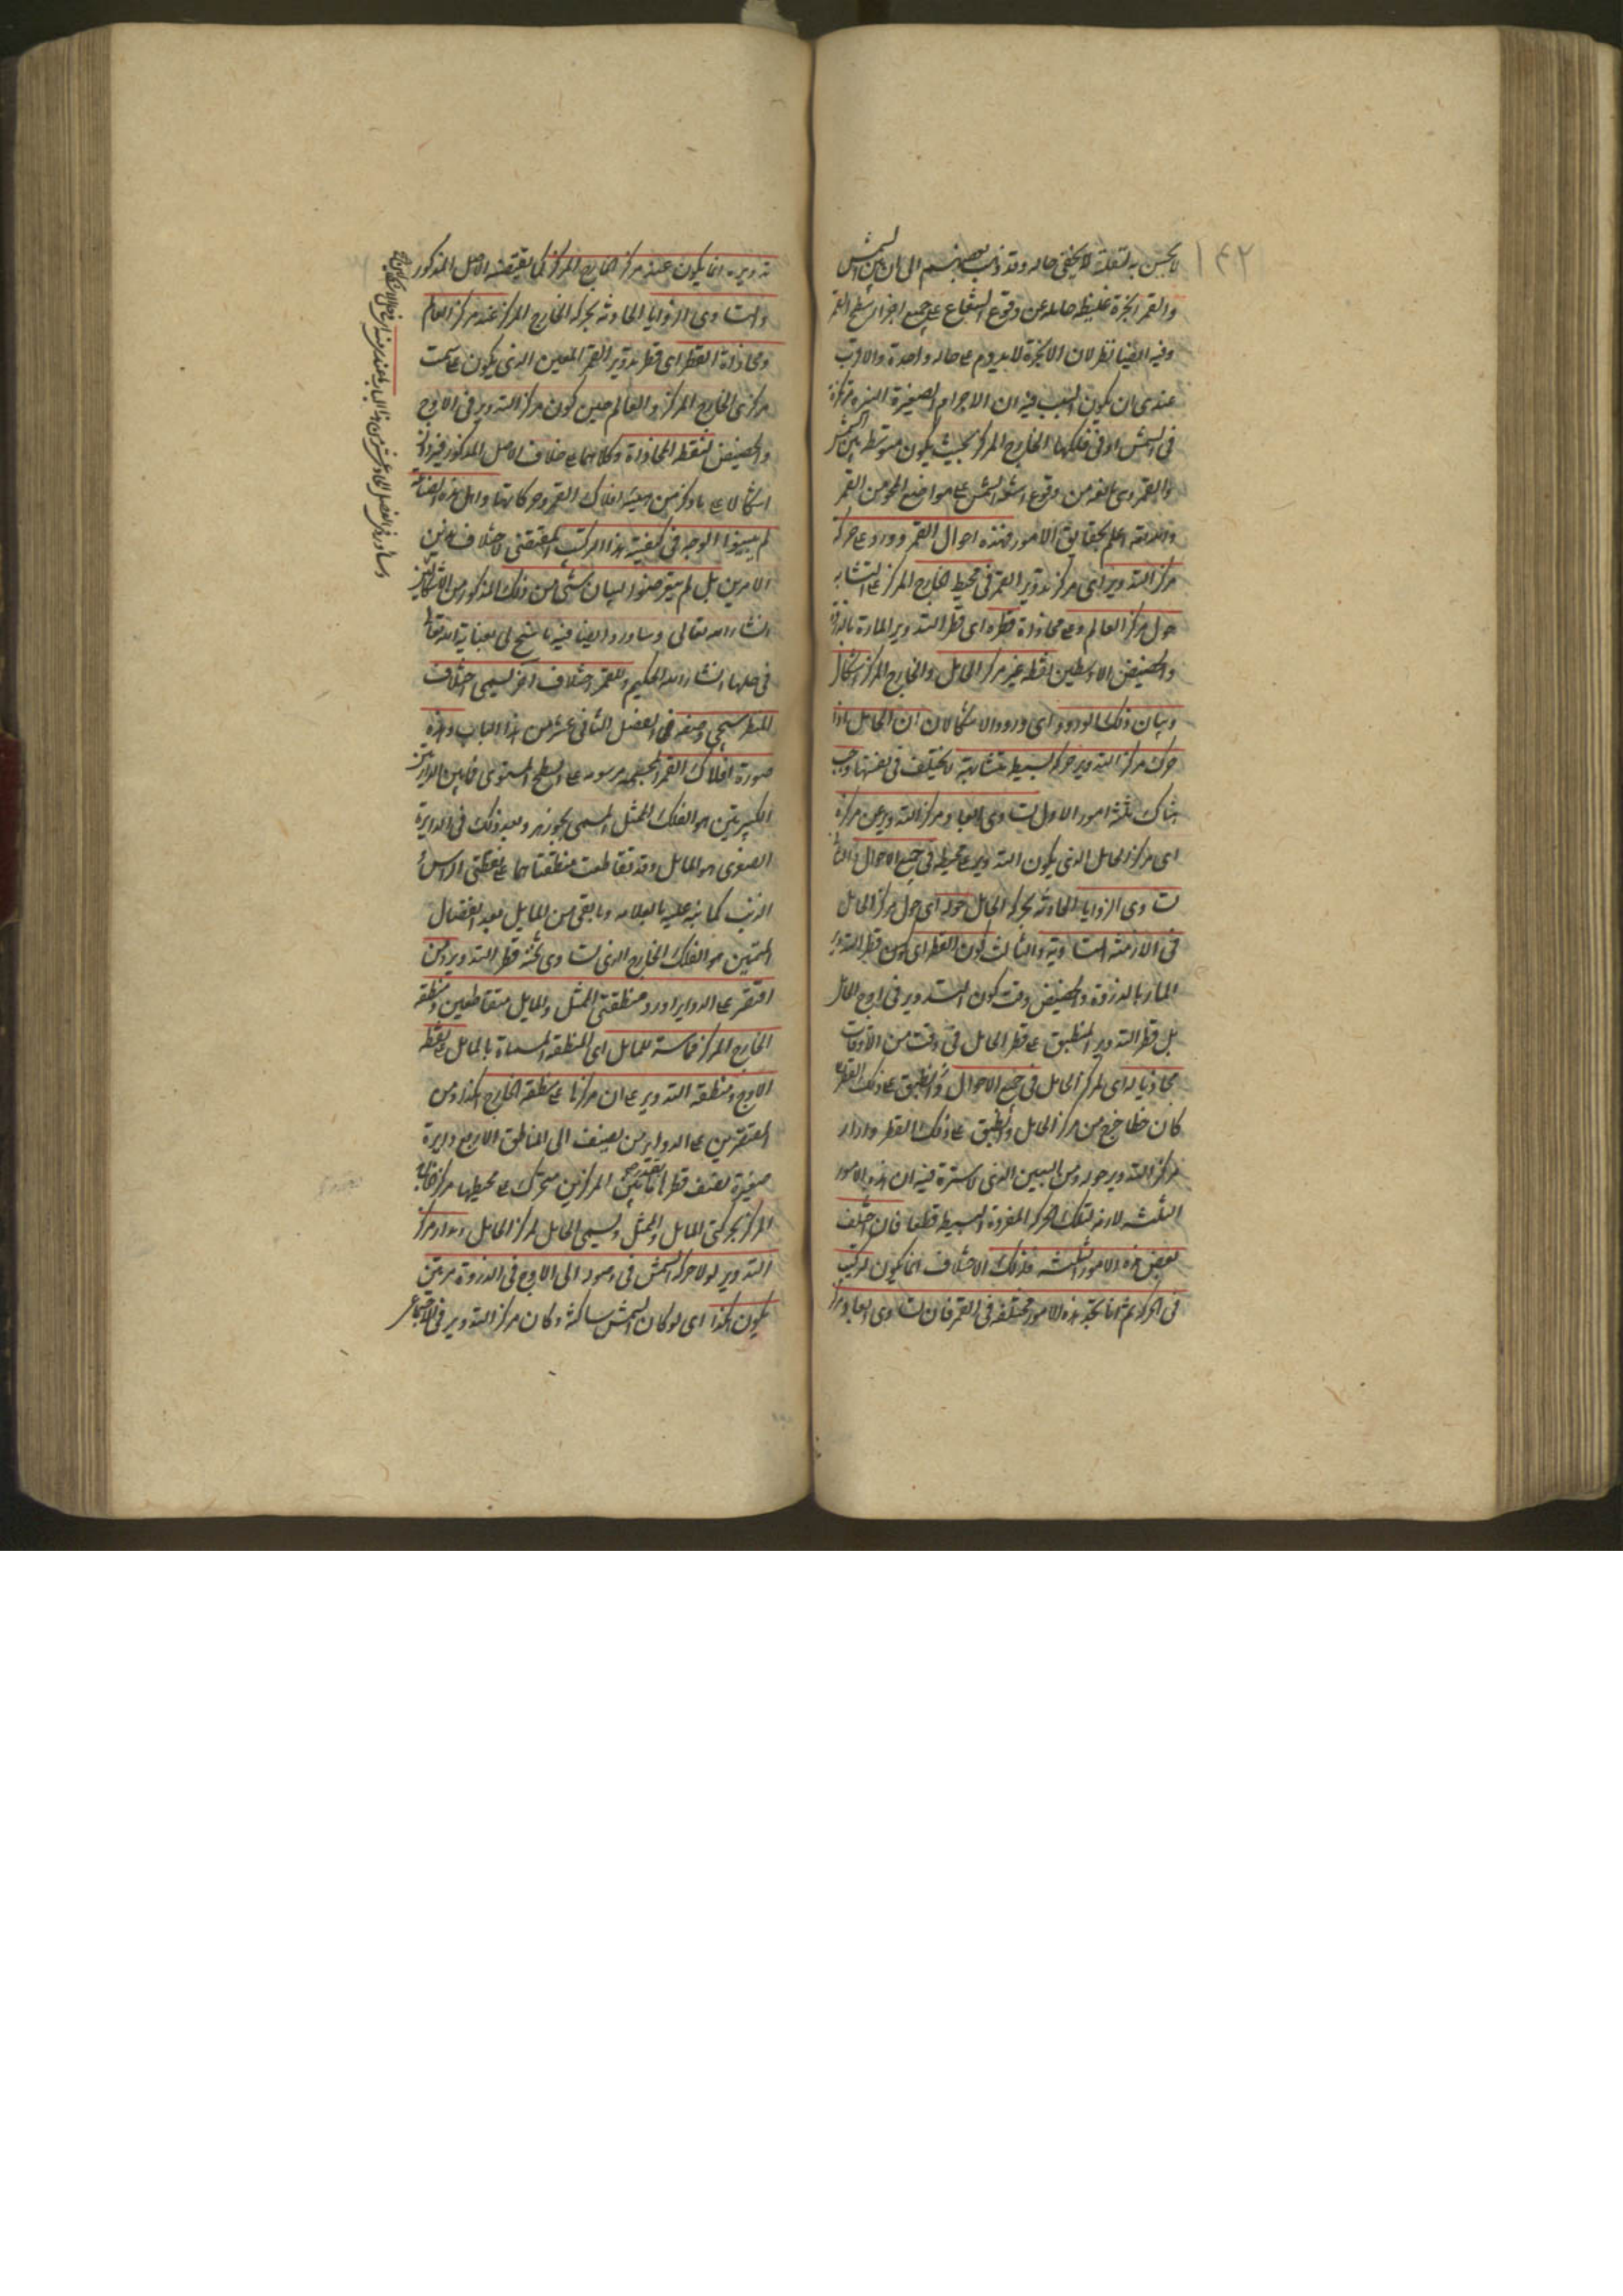 ١٤٢
لا يحس به لبعده لا يخفى حاله وقد ذهب بعضهم الى ان بين الشمس
والقمر ابخرة غليظة حايلة عن وقوع الشعاع على جميع اجزاء سطح القمر
وفيه ايضا نظر لان الابخرة لا يدوم على حالة واحدة والاقرب
عندى ان يكون السبب فيه ان الاجرام الصغيرة النيرة مركوزة
فى الشمس او فى فلكها الخارج المركز بحيث يكون متوسطة بين الشمس
والقمر وهى مانعة من وقوع اشعة الشمس على مواضع المحو من القمر
والله تعالى اعلم بحقايق الامور فهذه احوال القمر وورد على حركة
مركز التدوير اى مركز تدوير القمر فى محيط الخارج المركز على التشابه
حول مركز العالم وعلى محاذاة قطره اى قطر التدوير المارة بالذروة
والحضيض الاوسطين نقطة غير مركز الحامل والخارج المركز اشكال
وبيان ذلك الورود اى ورود الاشكال ان الحامل اذا
حرك مركز التدوير حركة بسيطة متشابهة لا يختلف فى نفسها وجب
هناك ثلثة امور الاول تساوى ابعاد مركز التدوير عن مركزه
اى مركز الحامل الذى يكون التدوير على محيطه فى جميع الاحوال والثانى
تساوى الزوايا الحادثة بحركة الحامل حوله اى حول مركز الحامل
فى الازمنة المتساوية والثالث كون القطر اى كون قطر التدوير
المار بالذروة والحضيض وقت كون التدوير فى اوج الحامل
بل قطر التدوير المنطبق على قطر الحامل فى وقت من الاوقات
محاذيا له اى لمركز الحامل فى جميع الاحوال والمنطبق على ذلك القطر
كان خطا خرج من مركز الحامل وانطبق على ذلك القطر وادار
مركز التدوير حوله ومن البين الذى لا سترة فيه ان هذه الامور
الثلثة لازمة لتلك الحركة المفردة البسيطة قطعا فان اختلف
بعض هذه الامور الثلثة فذلك الاختلاف انما يكون لتركيب
فى الحركة ثم انا نجد هذه الامور مختلفة فى القمر فان تساوى ابعاد مركز
تدويره انما يكون عند مركز الخارج المركز كما يقتضيه الاصل المذكور
وتساوى الزوايا الحادثة بحركة الخارج المركز عند مركز العالم
ومحاذاة القطر اى قطر تدوير القمر المعين الذى يكون على سمت
مركزى الخارج المركز والعالم حين كون مركز التدوير فى الاوج
والحضيض لنقطة المحاذاة وكلاهما على خلاف الاصل المذكور فيرد
اشكالا على ما ذكر من هيئة افلاك القمر وحركاتها واهل هذه الصناعة
لم يبينوا الوجه فى كيفية هذا التركيب المقتضى لاختلاف هذين
الامرين بل لم يتعرضوا لبيان شئ من ذلك المذكور من الاشكالين
انشاء الله تعالى وساورد ايضا فيه ما سنح لى بعناية الله تعالى
فى حلها انشاء الله الحكيم وللقمر اختلاف اخر يسمى اختلاف
المنظر سيجئ وصفه فى الفصل الثانى عشر من هذا الباب وهذه
صورة افلاك القمر المجسمة مرسومة على السطح المستوى فما بين الدايرتين
الكبيرتين هو الفلك الممثل المسمى بجوزهر وبعد ذلك فى الدايرة
الصغرى هو المايل وقد تقاطعت منطقتاهما على نقطتى الراس و
الذنب كما نبه عليه بالعلامة وما بقى من المايل بعد انفصال
المتممين هو الفلك الخارج الذى تساوى ثخنه قطر التدوير ومن
اقتصر على الدواير اورد منطقتى الممثل والمايل متقاطعين ومنطقة
الخارج المركز مماسة للمايل اى المنطقة المسماة بالمايل على نقطة
الاوج ومنطقة التدوير على ان مركزها على منطقة الخارج هكذا ومن
المقتصرين على الدواير من يضيف الى المناطق الاربع دايرة
صغيرة نصف قطرها ما بين المركزين متحرك على محيطها مركز خارج
المركز بحركتى المايل والممثل ويسمى الحامل لمركز الحامل ومدار مركز
التدوير لولا حركة الشمس فى وصوله الى الاوج فى الدورة مرتين
يكون هكذا اى لو كان الشمس ساكنة وكان مركز التدوير فى الاجتماع